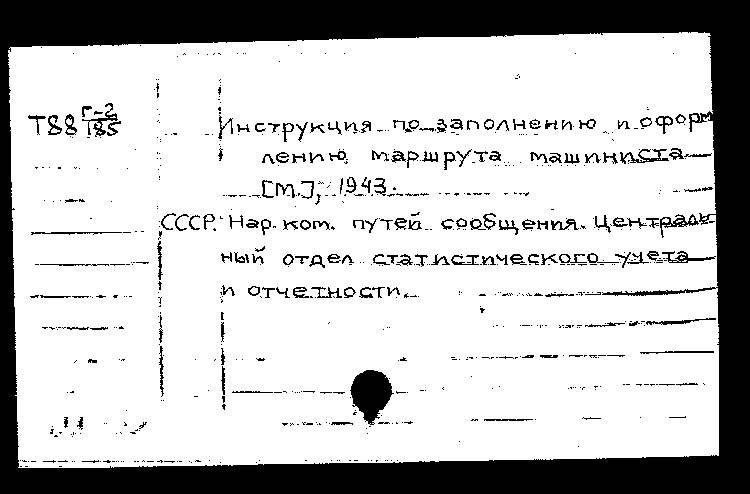 Т88 Г-2/185
Инструкция по заполнению и оформ
лению маршрута машиниста
[М.], 1943.
СССР. Нар. ком. путей сообщения. Централь
ный отдел статистического учета
и отчетности.